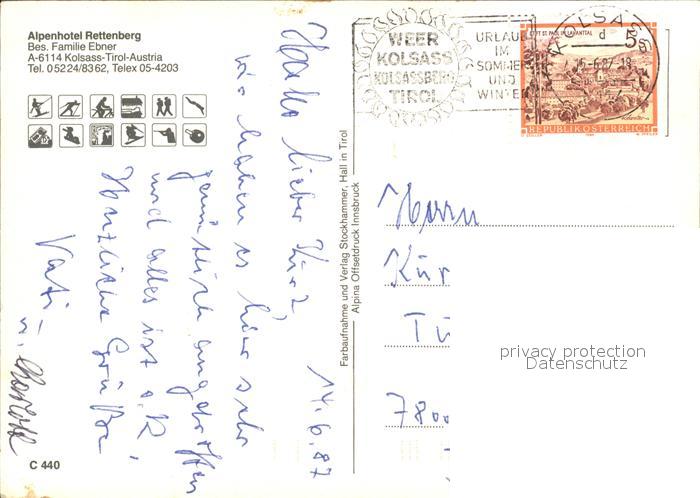 Alpenhotel Rettenberg
Bes. Familie Ebner
A-6114 Kolsass-Tirol-Austria
Tel. 05224/8362, Telex 05-4203
WEER
KOLSASS
KOLSASSBERG
TIROL
URLAUB
IM
SOMMER
UND
WINTER
STIFT ST. PAUL IM LAVANTTAL
5
REPUBLIK ÖSTERREICH
Hallo lieber Kurz,
wir haben es hier sehr
gemütlich angetroffen
und alles ist o.K.
Herzliche Grüße
Vati
14.6.87
Farbaufnahme und Verlag Stockhammer, Hall in Tirol
Alpina Offsetdruck Innsbruck
Herrn
Kur
Tü
780
privacy protection
Datenschutz
C 440